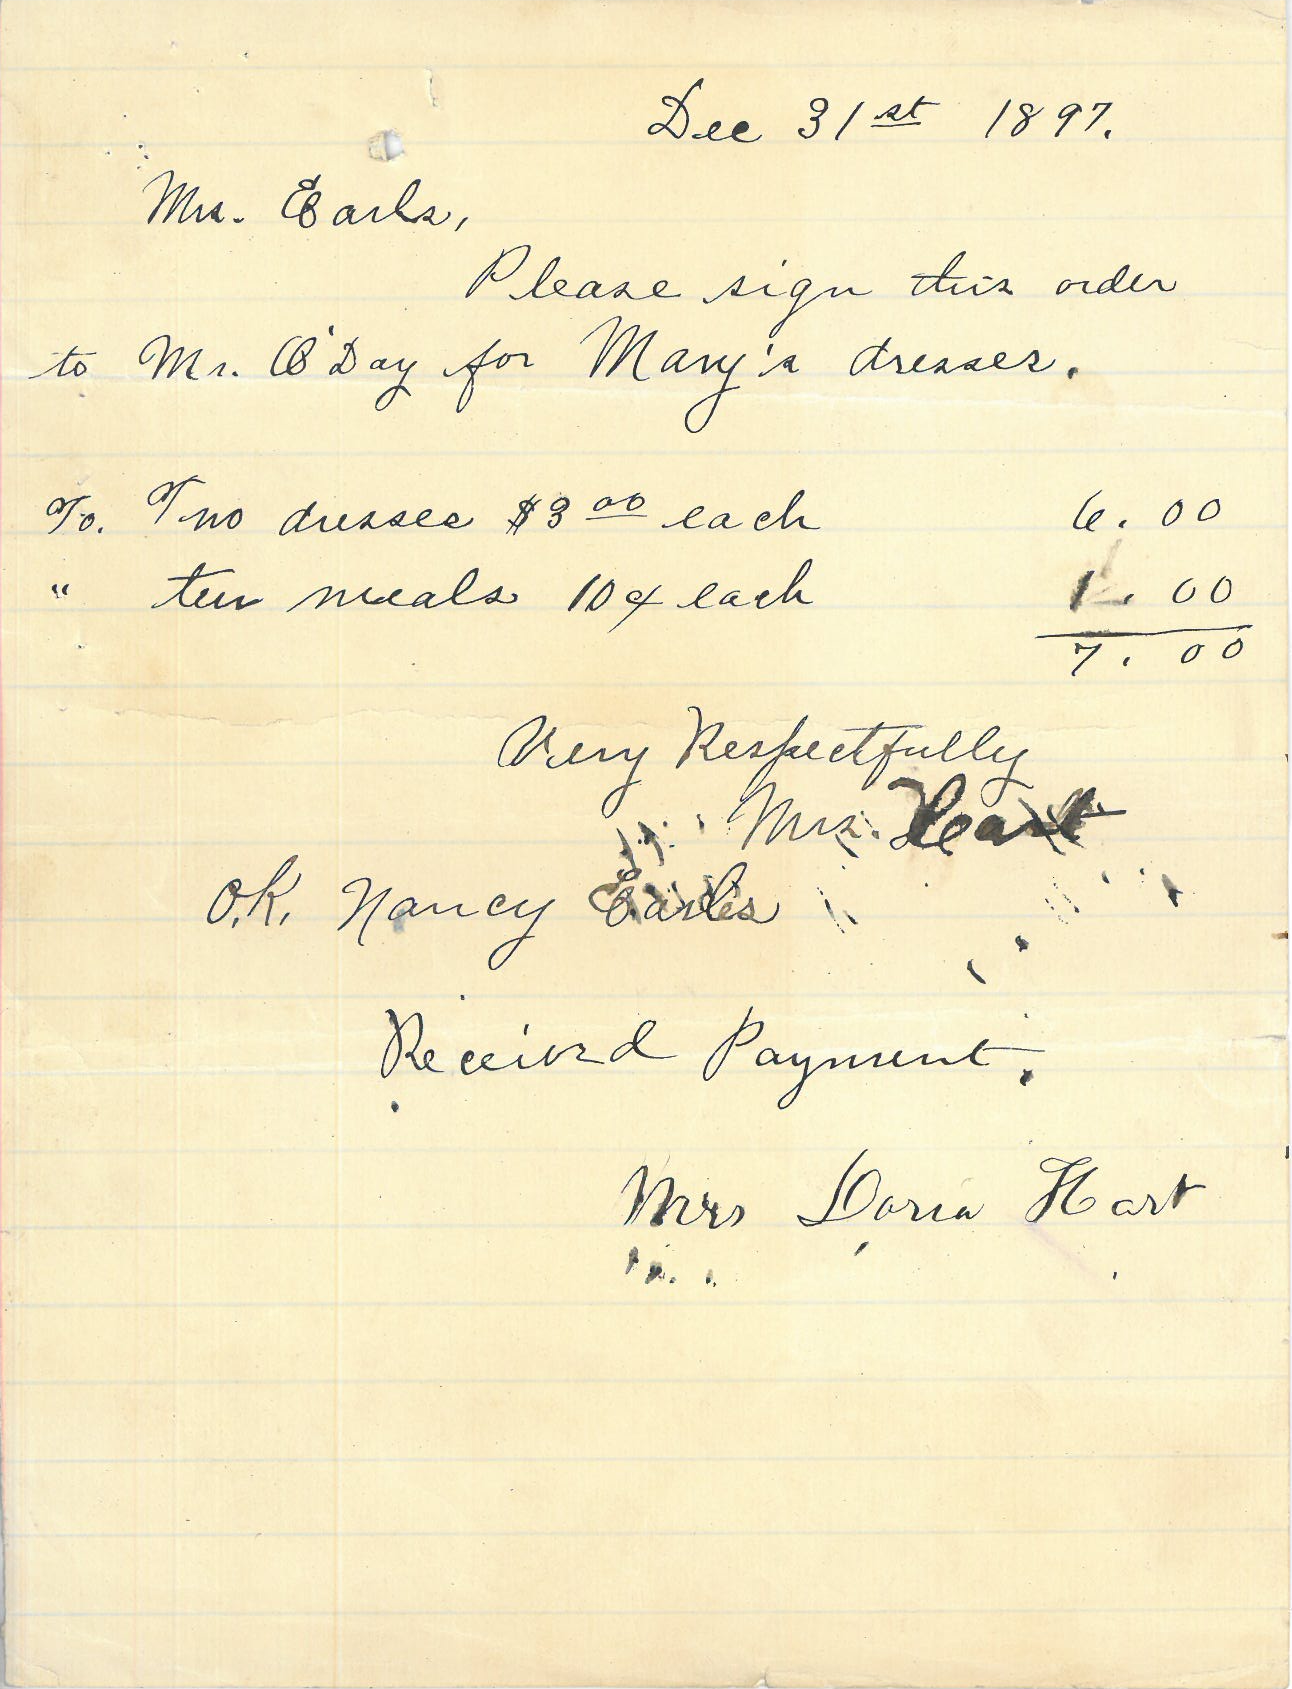 Dec 31st 1897.
Mrs. Earls,
Please sign this order
to Mr. O'Day for Mary's dresses.
To. Two dresses $3 00 each 6.00
" ten meals 10¢ each 1.00
7.00
Very Respectfully
Mrs. Hart
O.K. Nancy Earles
Received Payment.
Mrs Doria Hart